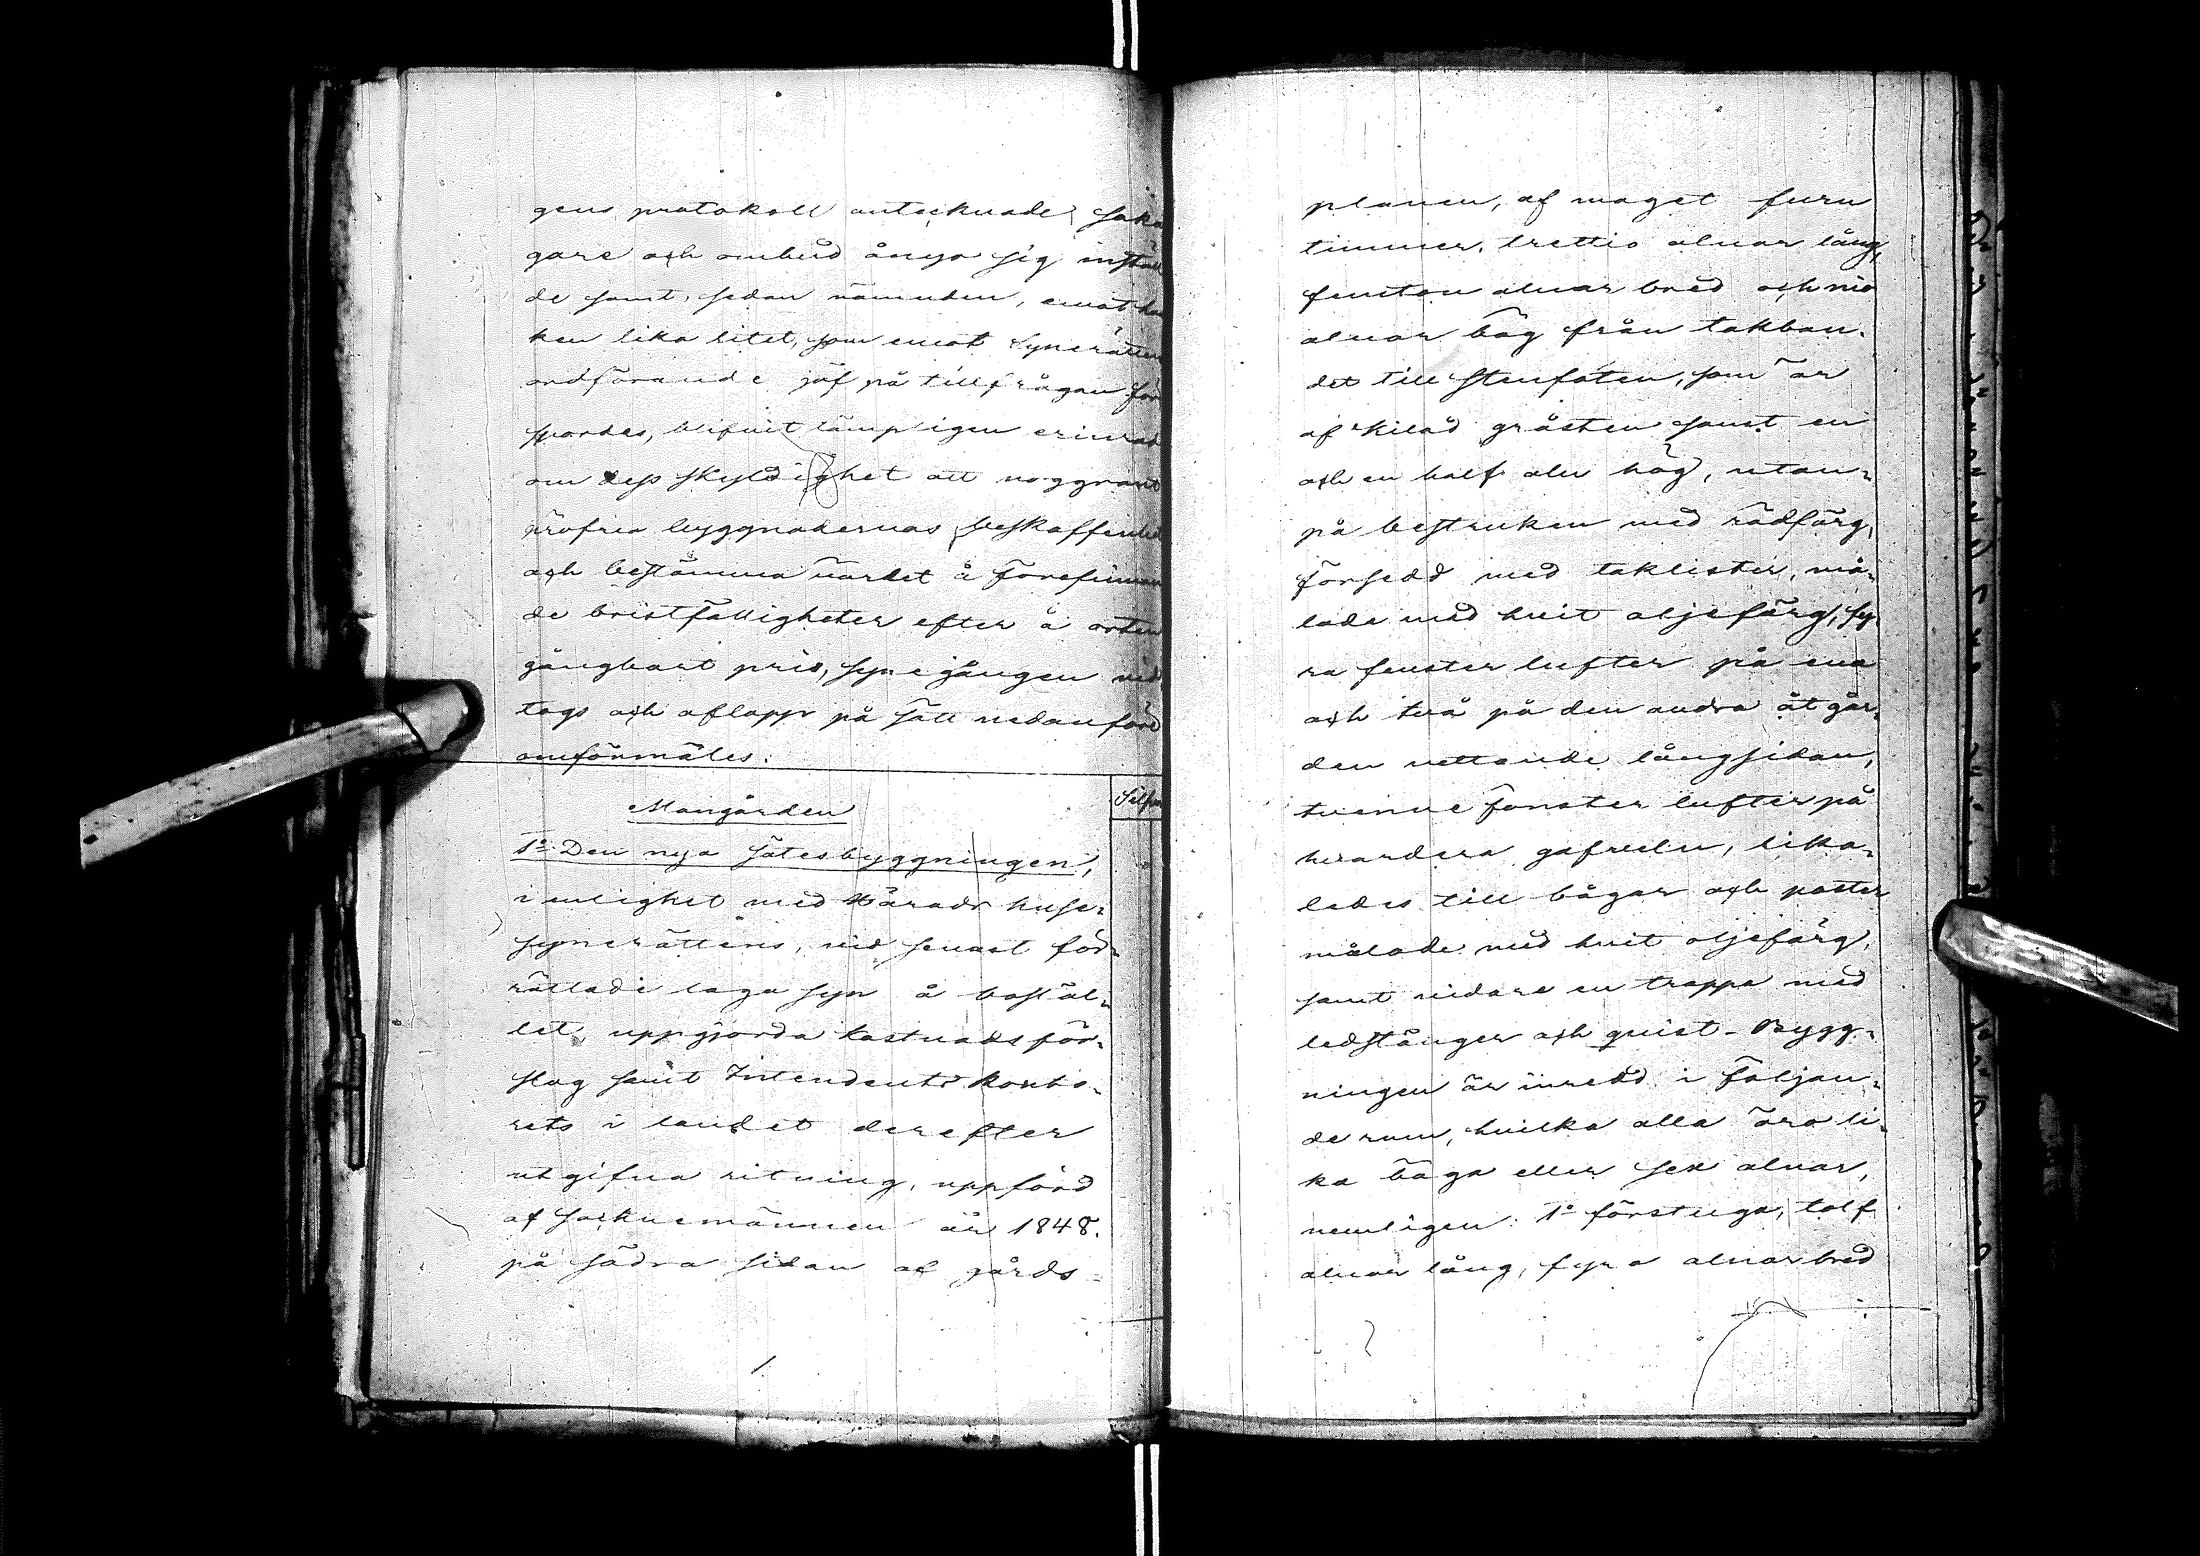 gens protokoll antecknade saka
gare och ombud ånyo sig instäl
de samt, sedan nämnden, emot hvil
ken lika litet, som emot Synerättens
ordförande jäf på tillfrågan för
spordes, blifvit lämpligen erinrad
om dess skyldighet att noggrant
pröfva byggnadernas beskaffenhet
och bestämma värdet å förefinnan
de bristfälligheter efter å orten
gångbart pris, synegången vid
togs och aflopp på sätt nedanföre
omförmäles.
Mangården
1º Den nya sätesbyggningen,
i enlighet med Härads huse-
synerättens, vid senast för-
rättade laga syn å bostäl-
let, uppgjorda kostnadsför-
slag samt Intendents Konto-
rets i landet derefter
utgifna ritning, uppförd
af socknemännen år 1848.
på södra sidan af gårds-
Silfver
planen, af moget furu
timmer, trettio alnar lång,
femton alnar bred och nio
alnar hög från takban-
det till stenfoten, som är
af kilad gråsten samt en
och en half aln hög, utan-
på bestruken med rödfärg,
försedd med taklister, må-
lade med hvit oljefärg, fy-
ra fenster lufter på ena
och två på den andra åt går-
den vettande långsidan,
tvenne fönster lufter på
hvardera gafveln, lika-
ledes till bågar och poster
målade med hvit oljefärg,
samt vidare en trappa med
ledstänger och qvist. Bygg-
ningen är inredd i följan-
de rum, hvilka alla äro li-
ka höga eller sex alnar,
nemligen: 1º förstuga, tolf
alnar lång, fyra alnar bred